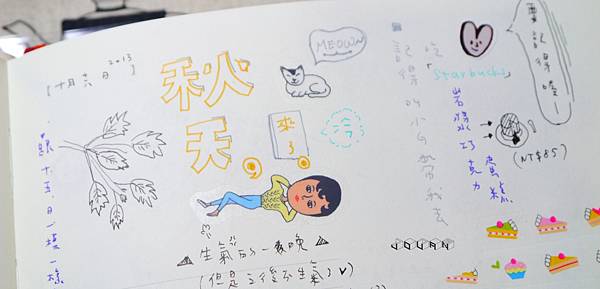 2013
[十月六日]
跟十五日一模一樣
秋天
來了
MEOWW
冷
生氣的一晚
(但是之後不生氣了V)
記得叫小
我去
吃
「Starbucks」
岩漿巧克力
蛋糕
(NT$85)
要記得喔
JOUAN